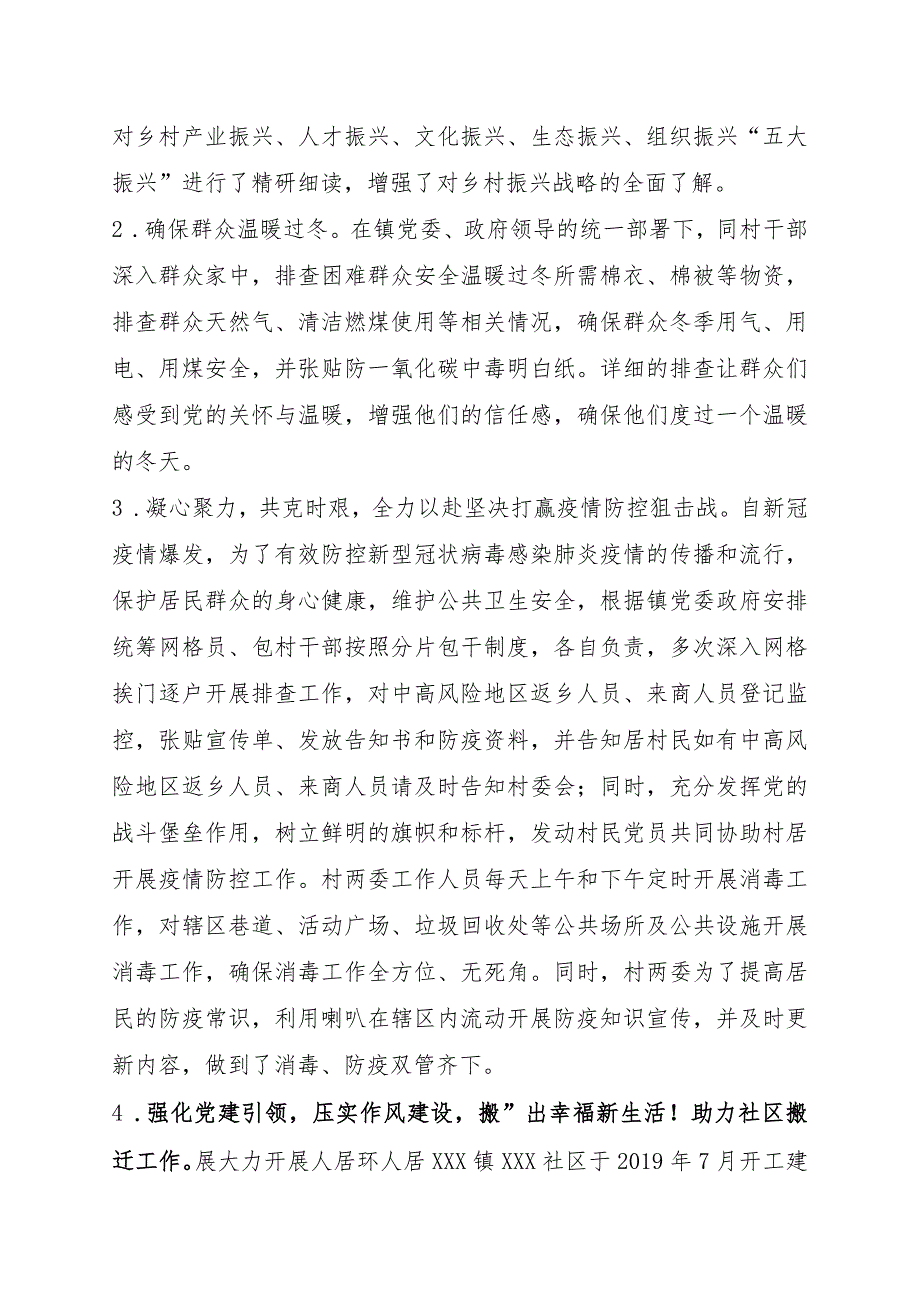 对乡村产业振兴、人才振兴、文化振兴、生态振兴、组织振兴“五大
振兴”进行了精研细读，增强了对乡村振兴战略的全面了解。
2 . 确保群众温暖过冬。在镇党委、政府领导的统一部署下，同村干部
深入群众家中，排查困难群众安全温暖过冬所需棉衣、棉被等物资，
排查群众天然气、清洁燃煤使用等相关情况，确保群众冬季用气、用
电、用煤安全，并张贴防一氧化碳中毒明白纸。详细的排查让群众们
感受到党的关怀与温暖，增强他们的信任感，确保他们度过一个温暖
的冬天。
3 . 凝心聚力，共克时艰，全力以赴坚决打赢疫情防控狙击战。自新冠
疫情爆发，为了有效防控新型冠状病毒感染肺炎疫情的传播和流行，
保护居民群众的身心健康，维护公共卫生安全，根据镇党委政府安排
统筹网格员、包村干部按照分片包干制度，各自负责，多次深入网格
挨门逐户开展排查工作，对中高风险地区返乡人员、来商人员登记监
控，张贴宣传单、发放告知书和防疫资料，并告知居村民如有中高风
险地区返乡人员、来商人员请及时告知村委会；同时，充分发挥党的
战斗堡垒作用，树立鲜明的旗帜和标杆，发动村民党员共同协助村居
开展疫情防控工作。村两委工作人员每天上午和下午定时开展消毒工
作，对辖区巷道、活动广场、垃圾回收处等公共场所及公共设施开展
消毒工作，确保消毒工作全方位、无死角。同时，村两委为了提高居
民的防疫常识，利用喇叭在辖区内流动开展防疫知识宣传，并及时更
新内容，做到了消毒、防疫双管齐下。
4 . 强化党建引领，压实作风建设，搬”出幸福新生活！助力社区搬
迁工作。展大力开展人居环人居 XXX 镇 XXX 社区于 2019 年 7 月开工建